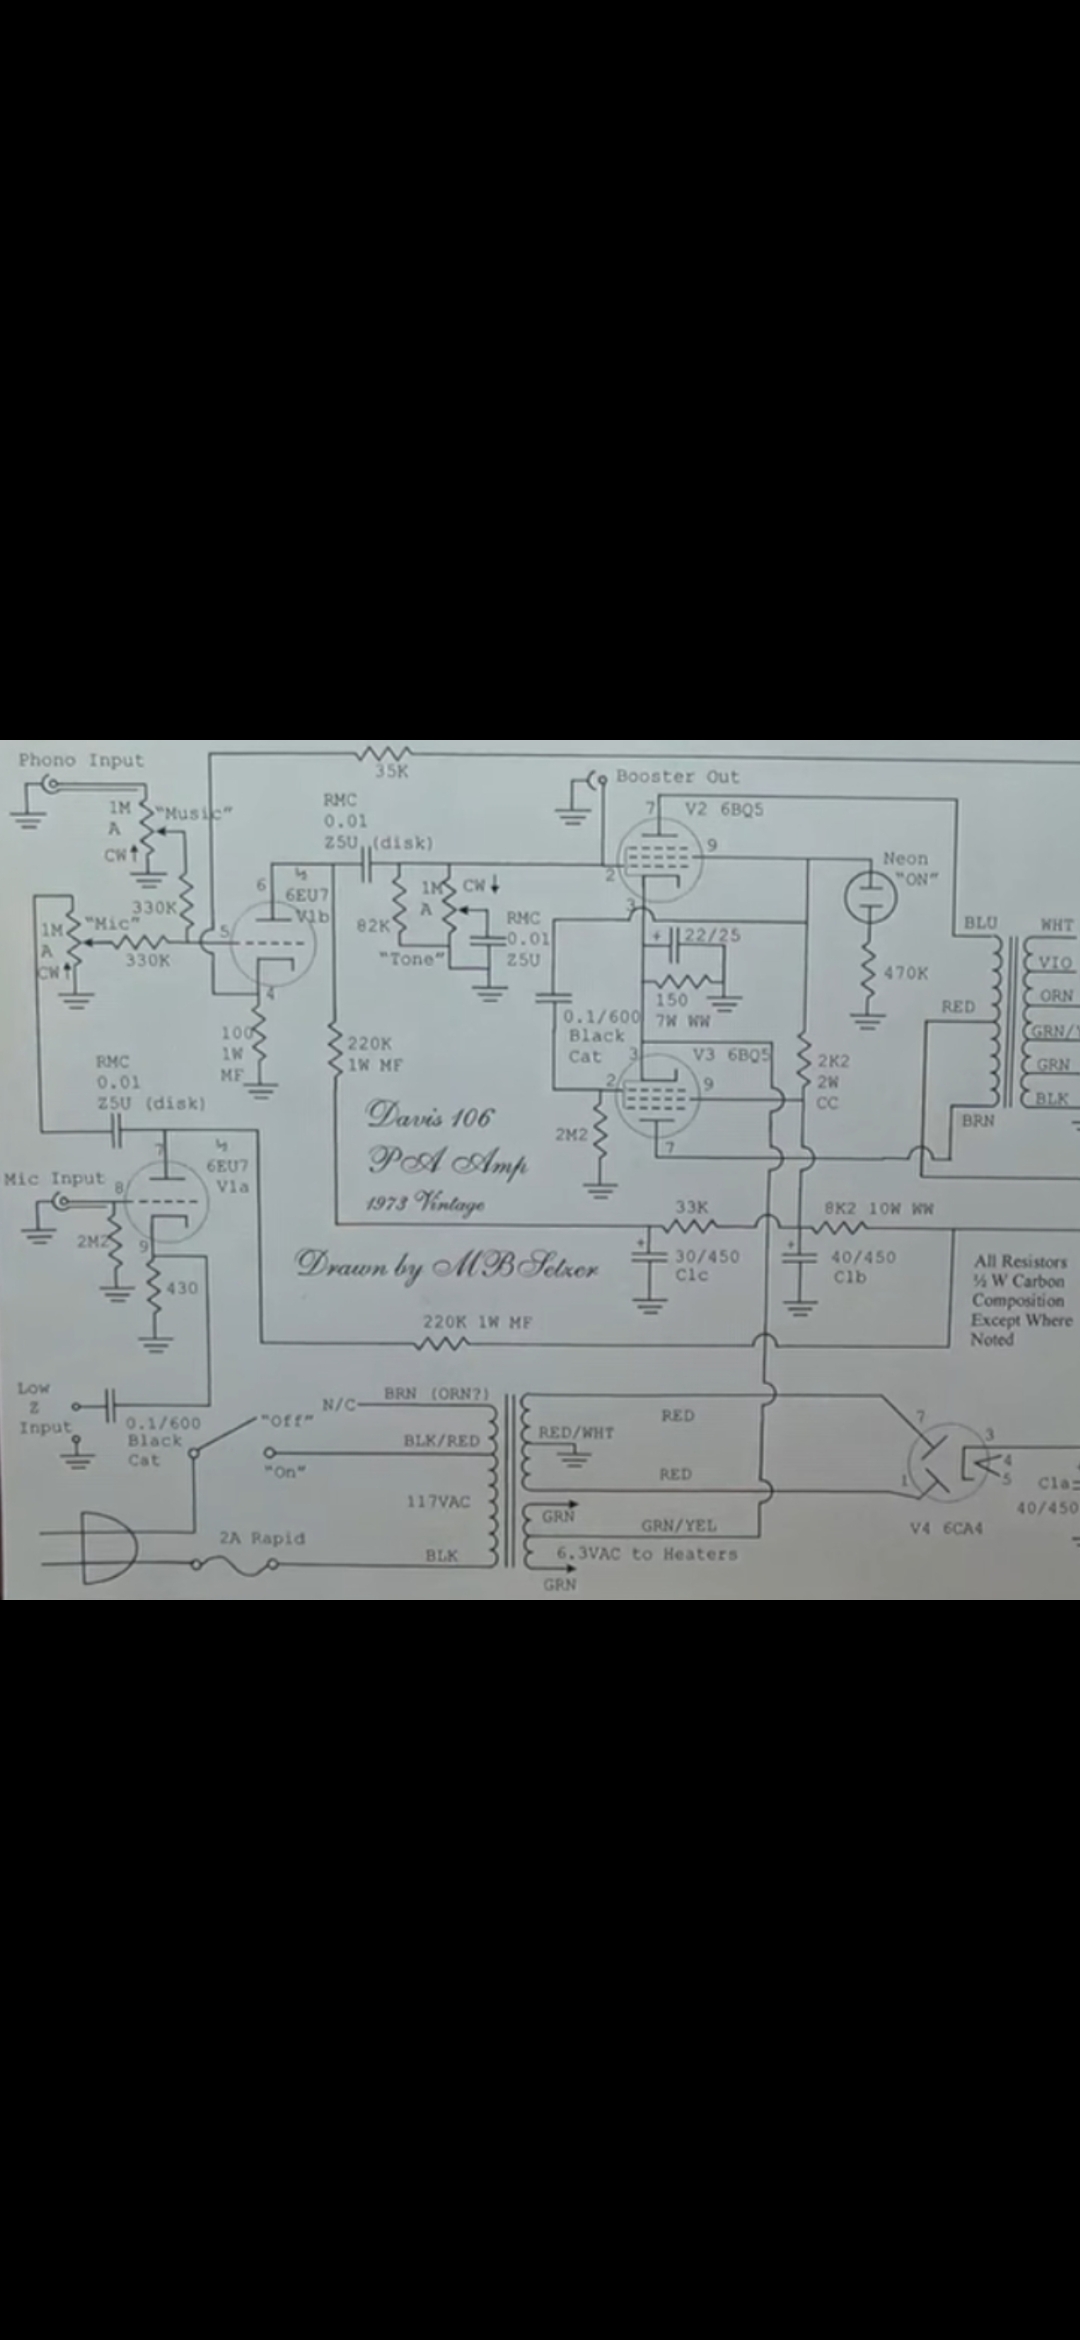 Phono Input
1M
A
CW
"Music"
35K
RMC
0.01
Z5U (disk)
Booster Out
7
V2 6BQ5
9
2
3
Neon
"ON"
470K
6
½
6EU7
V1b
5
4
330K
1M
A
CW
"Mic"
330K
82K
1M
A
CW
"Tone"
RMC
0.01
Z5U
22/25
+
150
7W WW
0.1/600
Black
Cat
100
1W
MF
220K
1W MF
3
V3 6BQ5
2
9
7
2M2
2K2
2W
CC
BLU
RED
BRN
WHT
VIO
ORN
GRN/Y
GRN
BLK
RMC
0.01
Z5U (disk)
7
½
6EU7
V1a
Mic Input
8
2M2
9
430
Davis 106
PA Amp
1973 Vintage
Drawn by MBSetzer
33K
8K2 10W WW
+
30/450
C1c
+
40/450
C1b
All Resistors
½ W Carbon
Composition
Except Where
Noted
220K 1W MF
Low
Z
Input
0.1/600
Black
Cat
"Off"
"On"
N/C
BRN (ORN?)
BLK/RED
117VAC
2A Rapid
BLK
RED
RED/WHT
RED
GRN
GRN/YEL
6.3VAC to Heaters
GRN
7
3
4
5
1
V4 6CA4
C1a
40/450